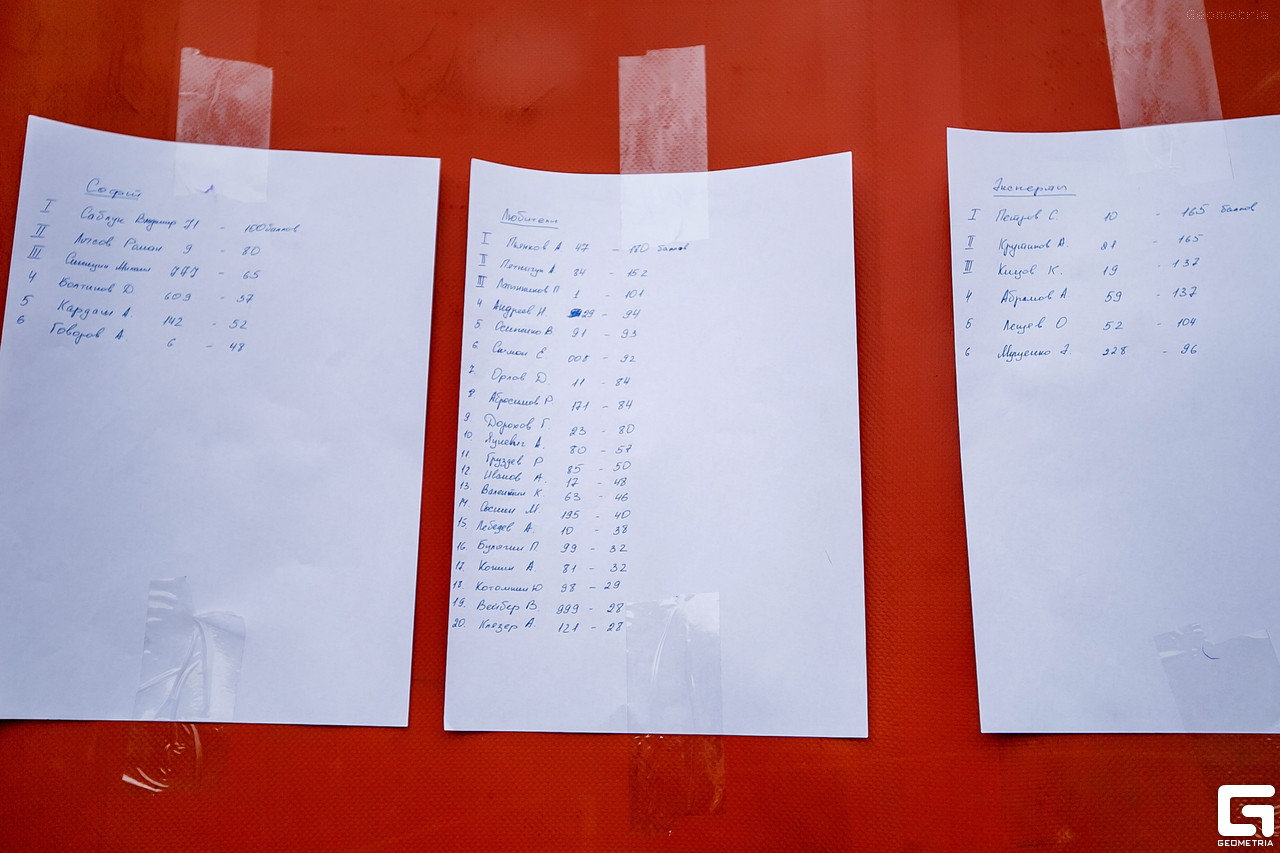 Geometria
Софит
I Саблук Владимир 71 - 100 баллов
II Роман 9 - 80
III Михаил 777 - 65
4 Болтиков Д. 609 - 57
5 Кардаш А. 142 - 52
6 Говоров А. 6 - 48
Любители
I А 47 - баллов
II А. 84 - 152
III П 1 - 101
4 Андреев Н. 99 - 94
5 Осипенко В. 91 - 93
6 Е 008 - 92
7. Орлов Д. 11 - 84
8 Абросимов Р. 171 - 84
9. Дорохов Г. 23 - 80
10. А. 80 - 57
11. Груздев Р 85 - 50
12. Иванов А. 17 - 48
13. Валентин К. 63 - 46
14 М. 195 - 40
15. Лебедев А. 10 - 38
16. Булагин П. 99 - 32
17. Кошин А. 81 - 32
18. Котомкин Ю 98 - 29
19. Вейбер В. 999 - 28
20. Клязер А. 121 - 28
Эксперты
I Петров С. 10 - 165 баллов
II Крутиков А. 21 - 165
III К. 19 - 137
4 Абрамов А. 59 - 137
5 Лещев О 52 - 104
6 Муценко 228 - 96
GEOMETRIA